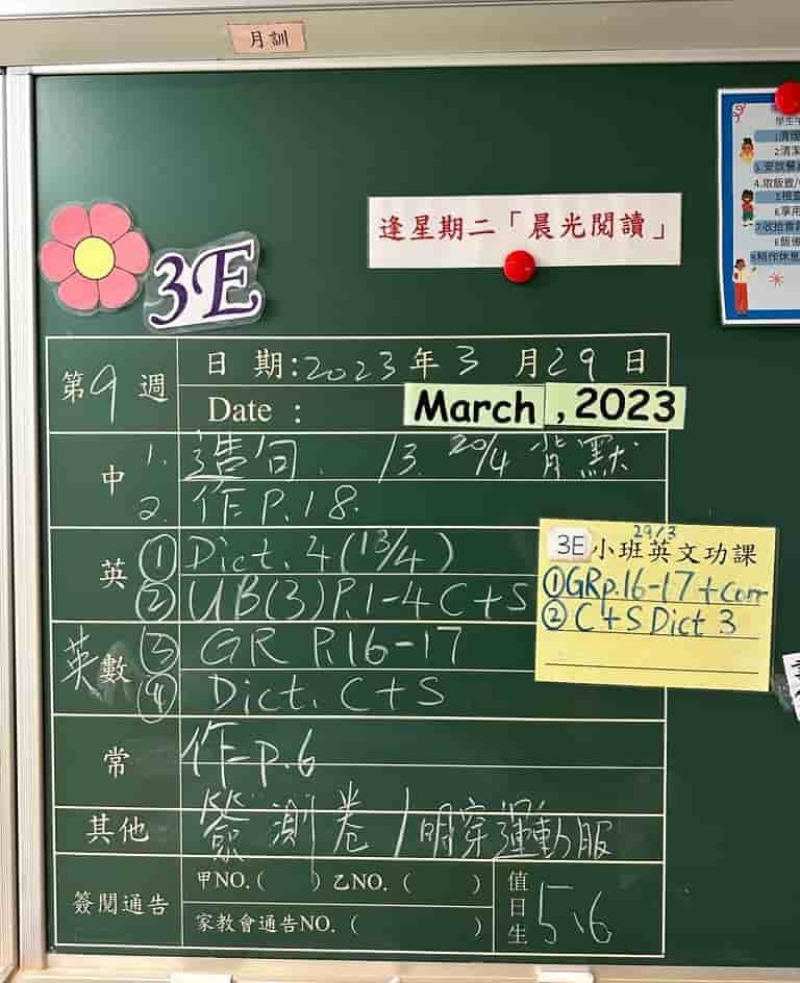 月訓
逢星期二「晨光閱讀」
3E
第9週
日期:2023年3月29日
Date : March , 2023
中
1. 造句. 13. 20/4 背默
2. 作P.18.
英
① Dict. 4 (13/4)
② UB(3) P.1-4 C+S
英數
③ GR P.16-17
④ Dict. C+S
常
作-P.6
其他
簽測卷/明穿運動服
簽閱通告
甲NO.( ) 乙NO. ( )
家教會通告NO. ( )
值日生
5、6
29/3
3E 小班英文功課
①GRp.16-17+corr
② C+S Dict 3
2.清潔
4.取飯壺/
6.享用